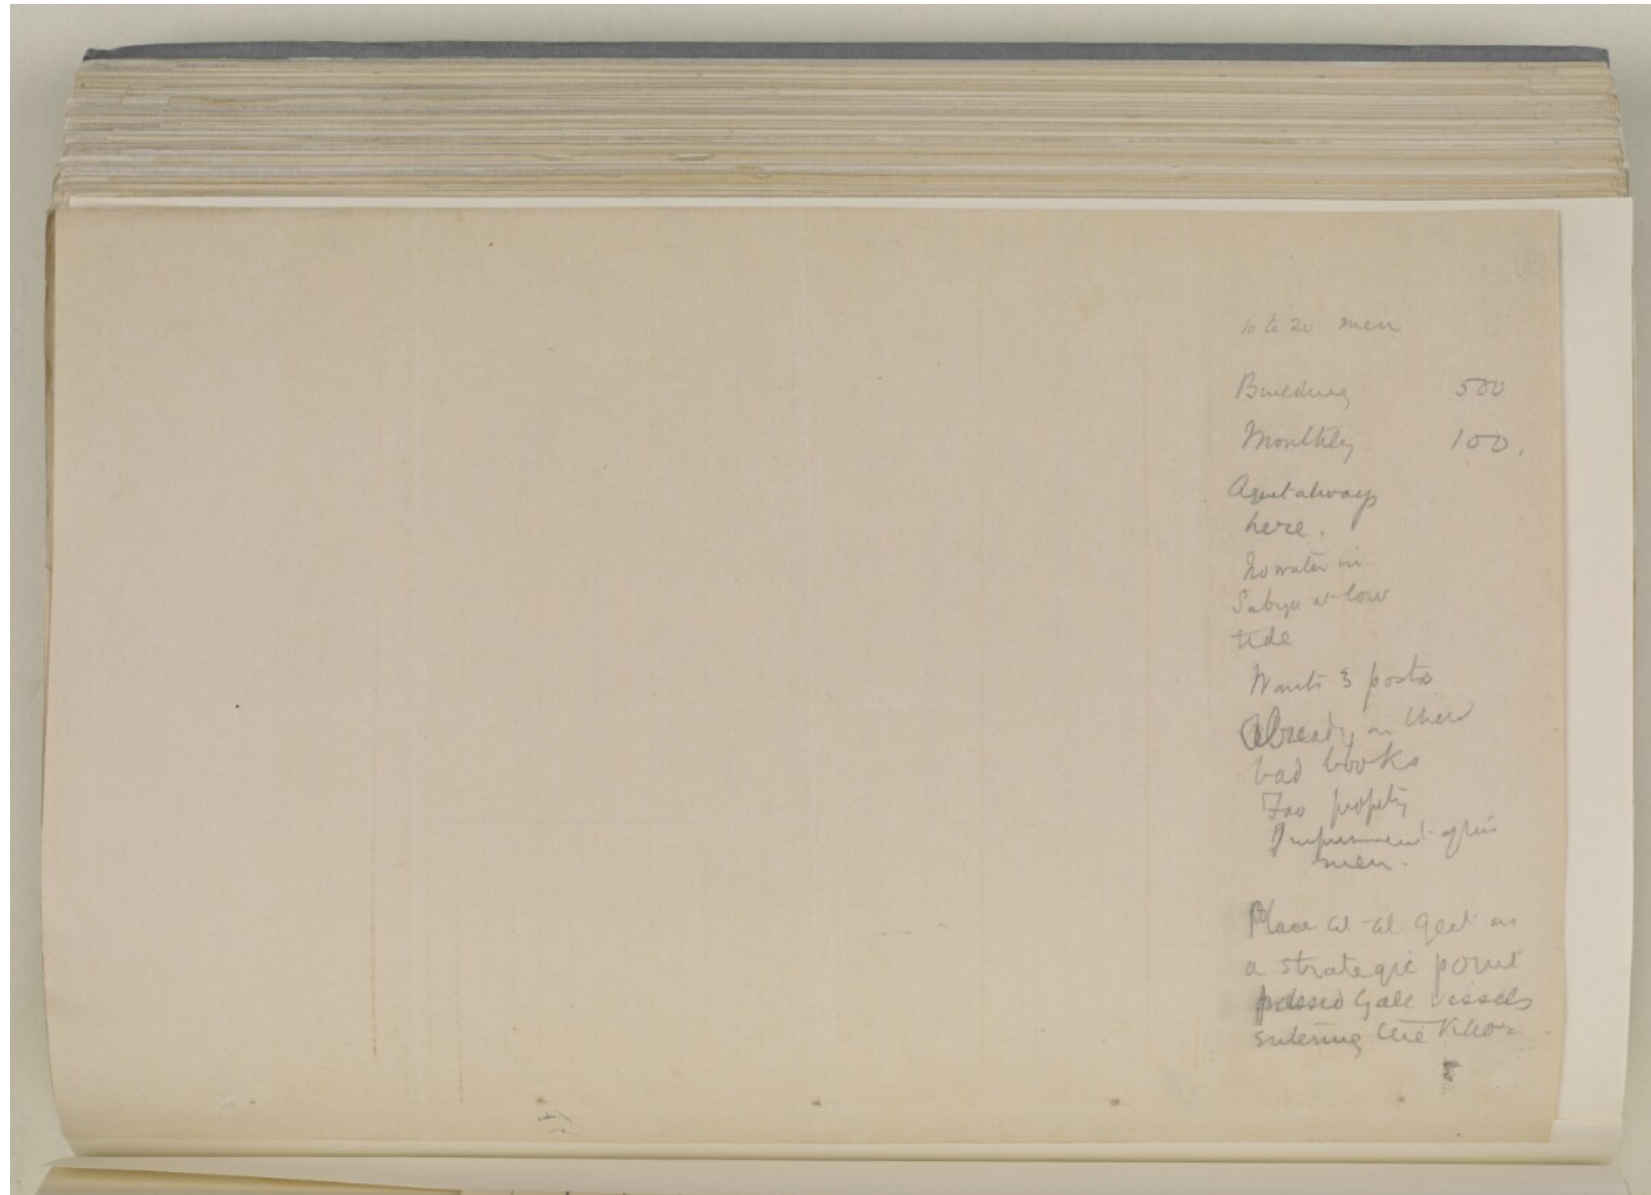 10 to 20 men
Building 500
Monthly 100.
Agent always
here.
No water in
Sabiya at low
tide
Wants 3 posts
Already in their
bad books
Fao property
Imprisonment of his
men.
Place at al as
a strategic point
passed by all vessels
entering the Khor